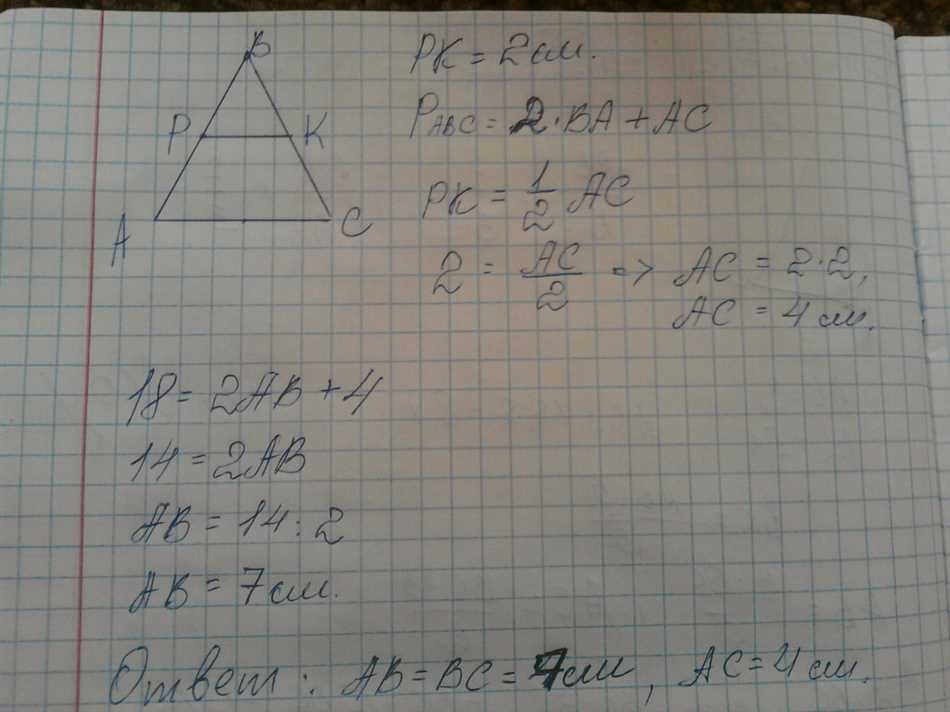 B
P K
A C
PK = 2 см.
P ABC = 2 · BA + AC
PK = 1/2 AC
2 = AC/2 => AC = 2·2,
AC = 4 см.
18 = 2AB + 4
14 = 2AB
AB = 14 : 2
AB = 7 см.
Ответ: AB = BC = 7 см, AC = 4 см.